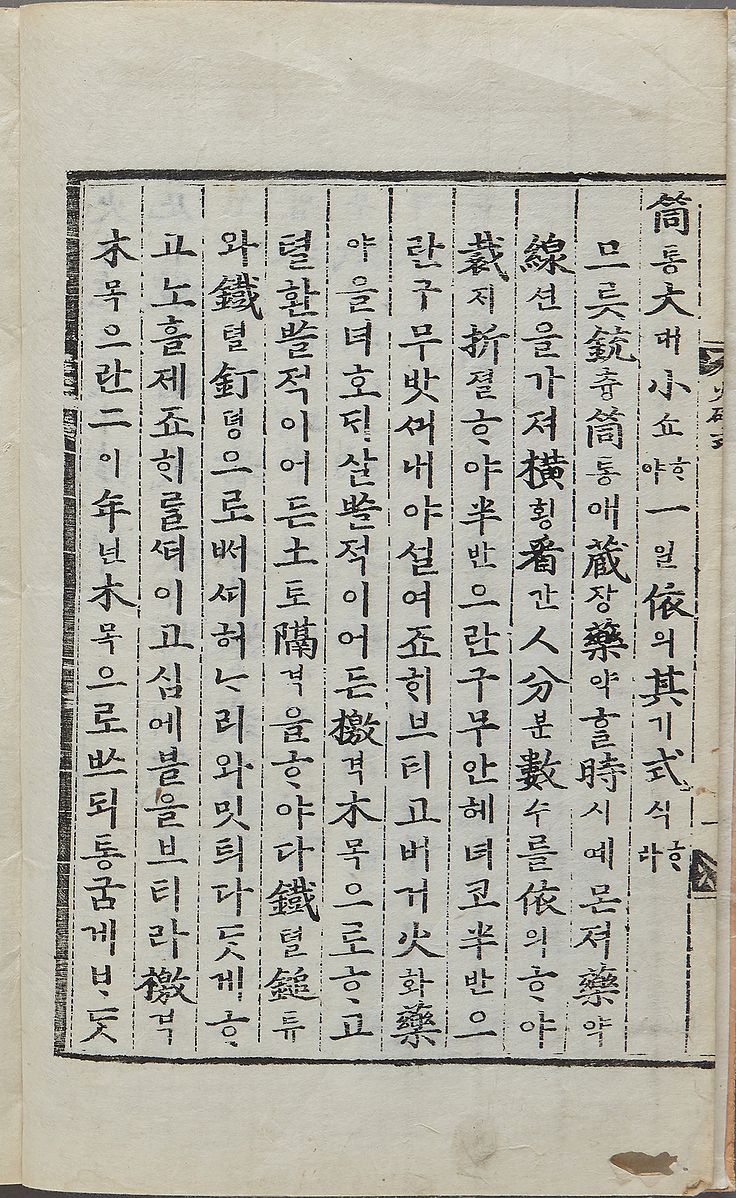 筒통大대小쇼ᄒᆞ야一일依의其기式식ᄒᆞ라
므릇銃츙筒통애藏장藥약홀時시예몬져藥약
線션을가져橫횡看간ㅅ分분數수를依의ᄒᆞ야
裁ᄌᆡ折졀ᄒᆞ야半반으란구무안헤녀코半반으
란구무밧ᄭᅴ내야설여죠ᄒᆡ브티고버거火화藥
약을녀호ᄃᆡ살ᄡᅳᆯ적이어든檄격木목으로ᄒᆞ고
텰환ᄡᅳᆯ적이어든土토隔격을ᄒᆞ야다鐵텰鎚튜
와鐵텰釘뎡으로ᄡᅥᄶᅵ허ᄂᆞ리와밋틔다ᄃᆞᆺ게ᄒᆞ
고노흘제죠ᄒᆡ를ᄯᅥ이고심에블을브티라檄격
木목으란二이年년木목으로ᄡᅳ되통굼게ᄇᆞᄃᆞᆺ